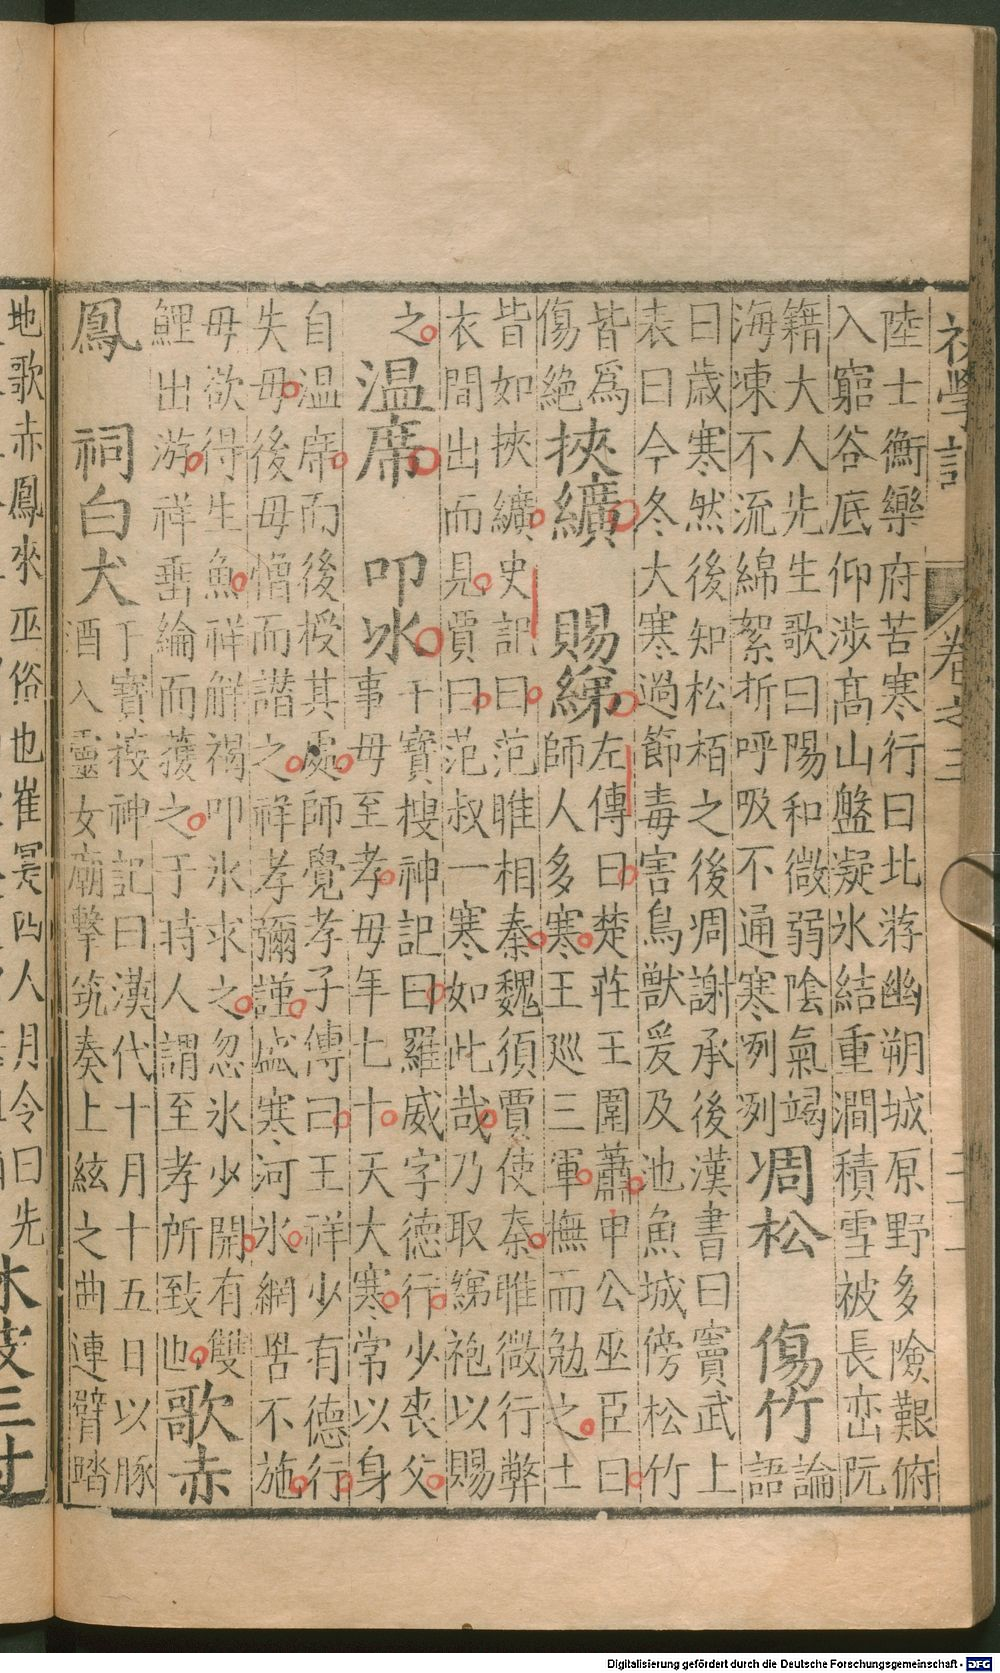 初學記 卷之三 二十一
陸士衡樂府苦寒行曰北游幽朔城原野多險艱俯
入窮谷底仰涉高山盤凝氷結重澗積雪被長巒阮
籍大人先生歌曰陽和微弱陰氣竭
海凍不流綿絮折呼吸不通寒冽冽
凋松 傷竹
論
語
曰歲寒然後知松栢之後凋謝承後漢書曰竇武上
表曰今冬大寒過節毒害鳥獸爰及池魚城傍松竹
皆爲
傷絶
挾纊 賜綈
左傳曰楚莊王圍蕭申公巫臣曰
師人多寒王廵三軍撫而勉之士
皆如挾纊史記曰范雎相秦魏須賈使秦雎微行弊
衣間出而見賈曰范叔一寒如此哉乃取綈袍以賜
之
温席 叩氷
干寶搜神記曰羅威字德行少丧父
事母至孝母年七十天大寒常以身
自温席而後授其處師覺孝子傳曰王祥少有德行
失母後母憎而譖之祥孝彌謹盛寒河氷網罟不施
母欲得生魚祥解褐叩氷求之忽氷少開有雙
鯉出游祥垂綸而獲之于時人謂至孝所致也
歌赤
鳳 祠白犬
于寶搜神記曰漢代十月十五日以豚
酒入靈女廟擊筑奏上絃之曲連臂踏
地歌赤鳳來巫俗也崔寔四人月令曰先
Digitalisierung gefördert durch die Deutsche Forschungsgemeinschaft - DFG